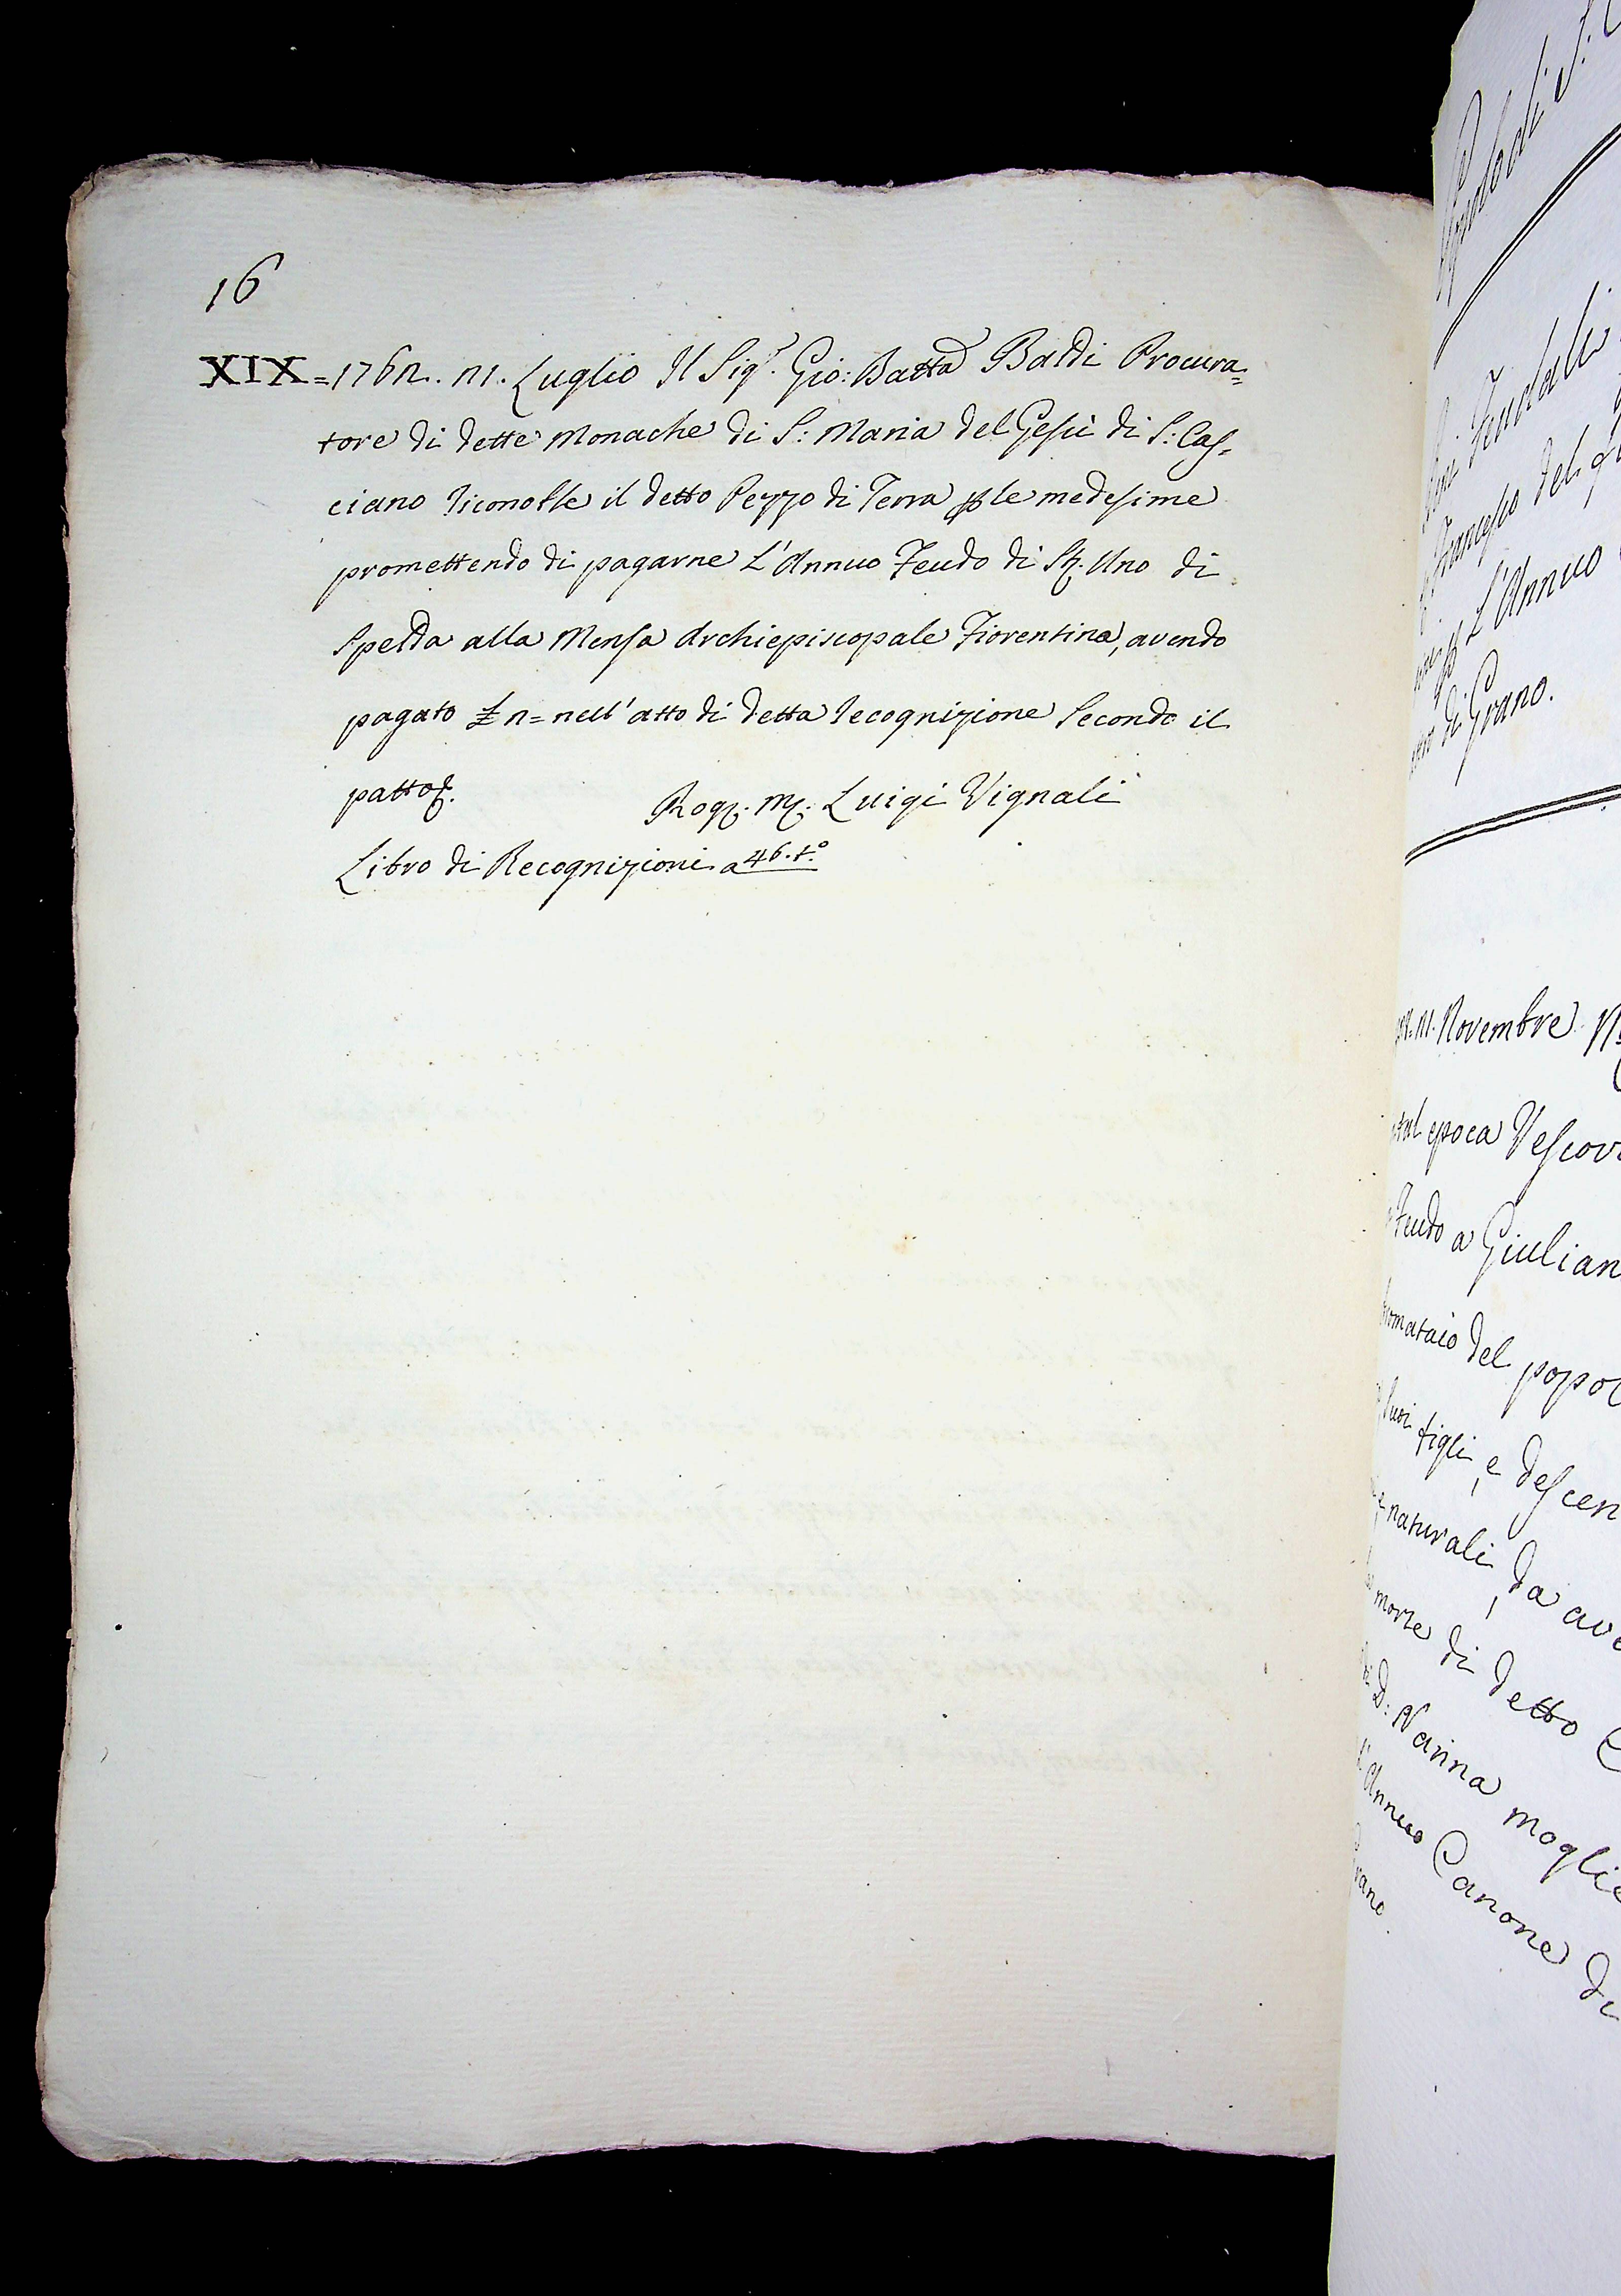 16
XIX = 1762. 21. Luglio Il Sig.r Gio: Batta Baldi Procura=
tore di dette Monache di S: Maria del Gesù di S: Cas-
ciano riconosse il detto Pezzo di Terra p le medesime
promettendo di pagarne L'Annuo Feudo di St. Uno di
Spelda alla Mensa Archiepiscopale Fiorentina, avendo
pagato £ 2 = nell'atto di detta recognizione Secondo il
patto
Rog. M. Luigi Vignali
Libro di Recognizioni a 46. t.o
L'Annuo
di Grano.
21. Novembre
epoca Vescov
Feudo a Giulian
del popol
suoi figli, e descen
e naturali, da ave
morte di detto
D: Nanna moglie
Annuo Canone di